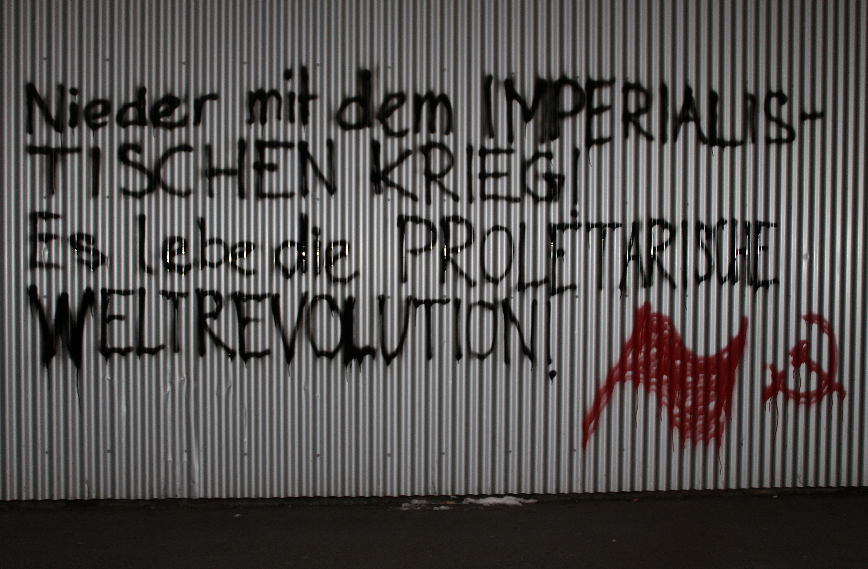 Nieder mit dem IMPERIALIS-
TISCHEN KRIEG!
Es lebe die PROLETARISCHE
WELTREVOLUTION!